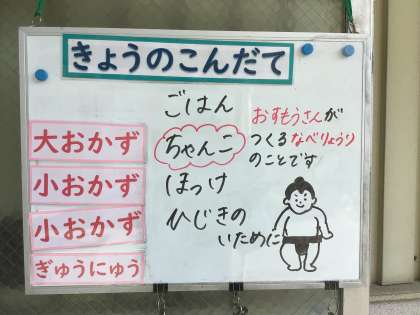 きょうのこんだて
ごはん
大おかず
ちゃんこ
小おかず
ほっけ
小おかず
ひじきの
いために
ぎゅうにゅう
おすもうさんが
つくるなべりょうり
のことです